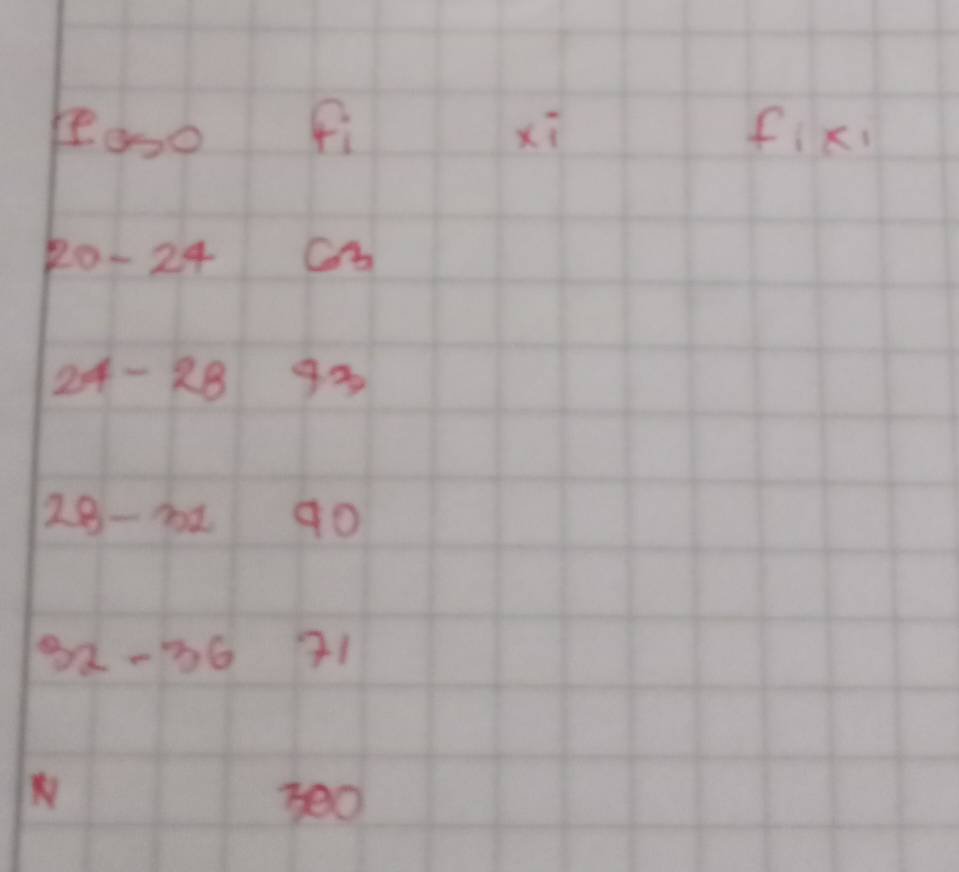 Peso fi xi fixi
20-24 63
24-28 93
28-32 90
32-36 71
N 380